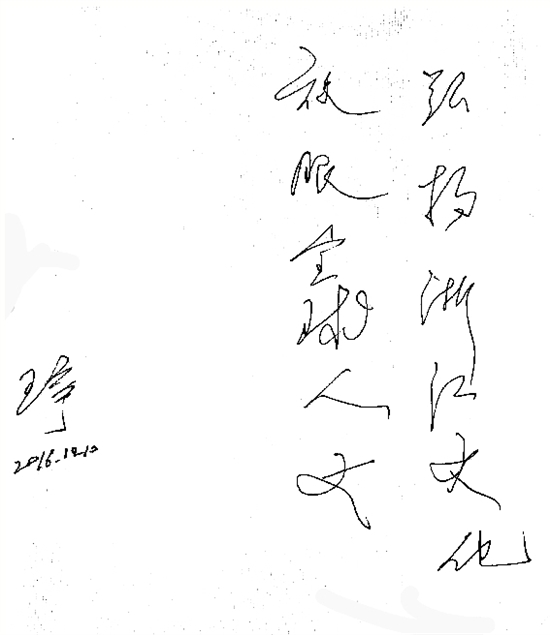 弘扬浙江文化
放眼全球人文
2016.12.10